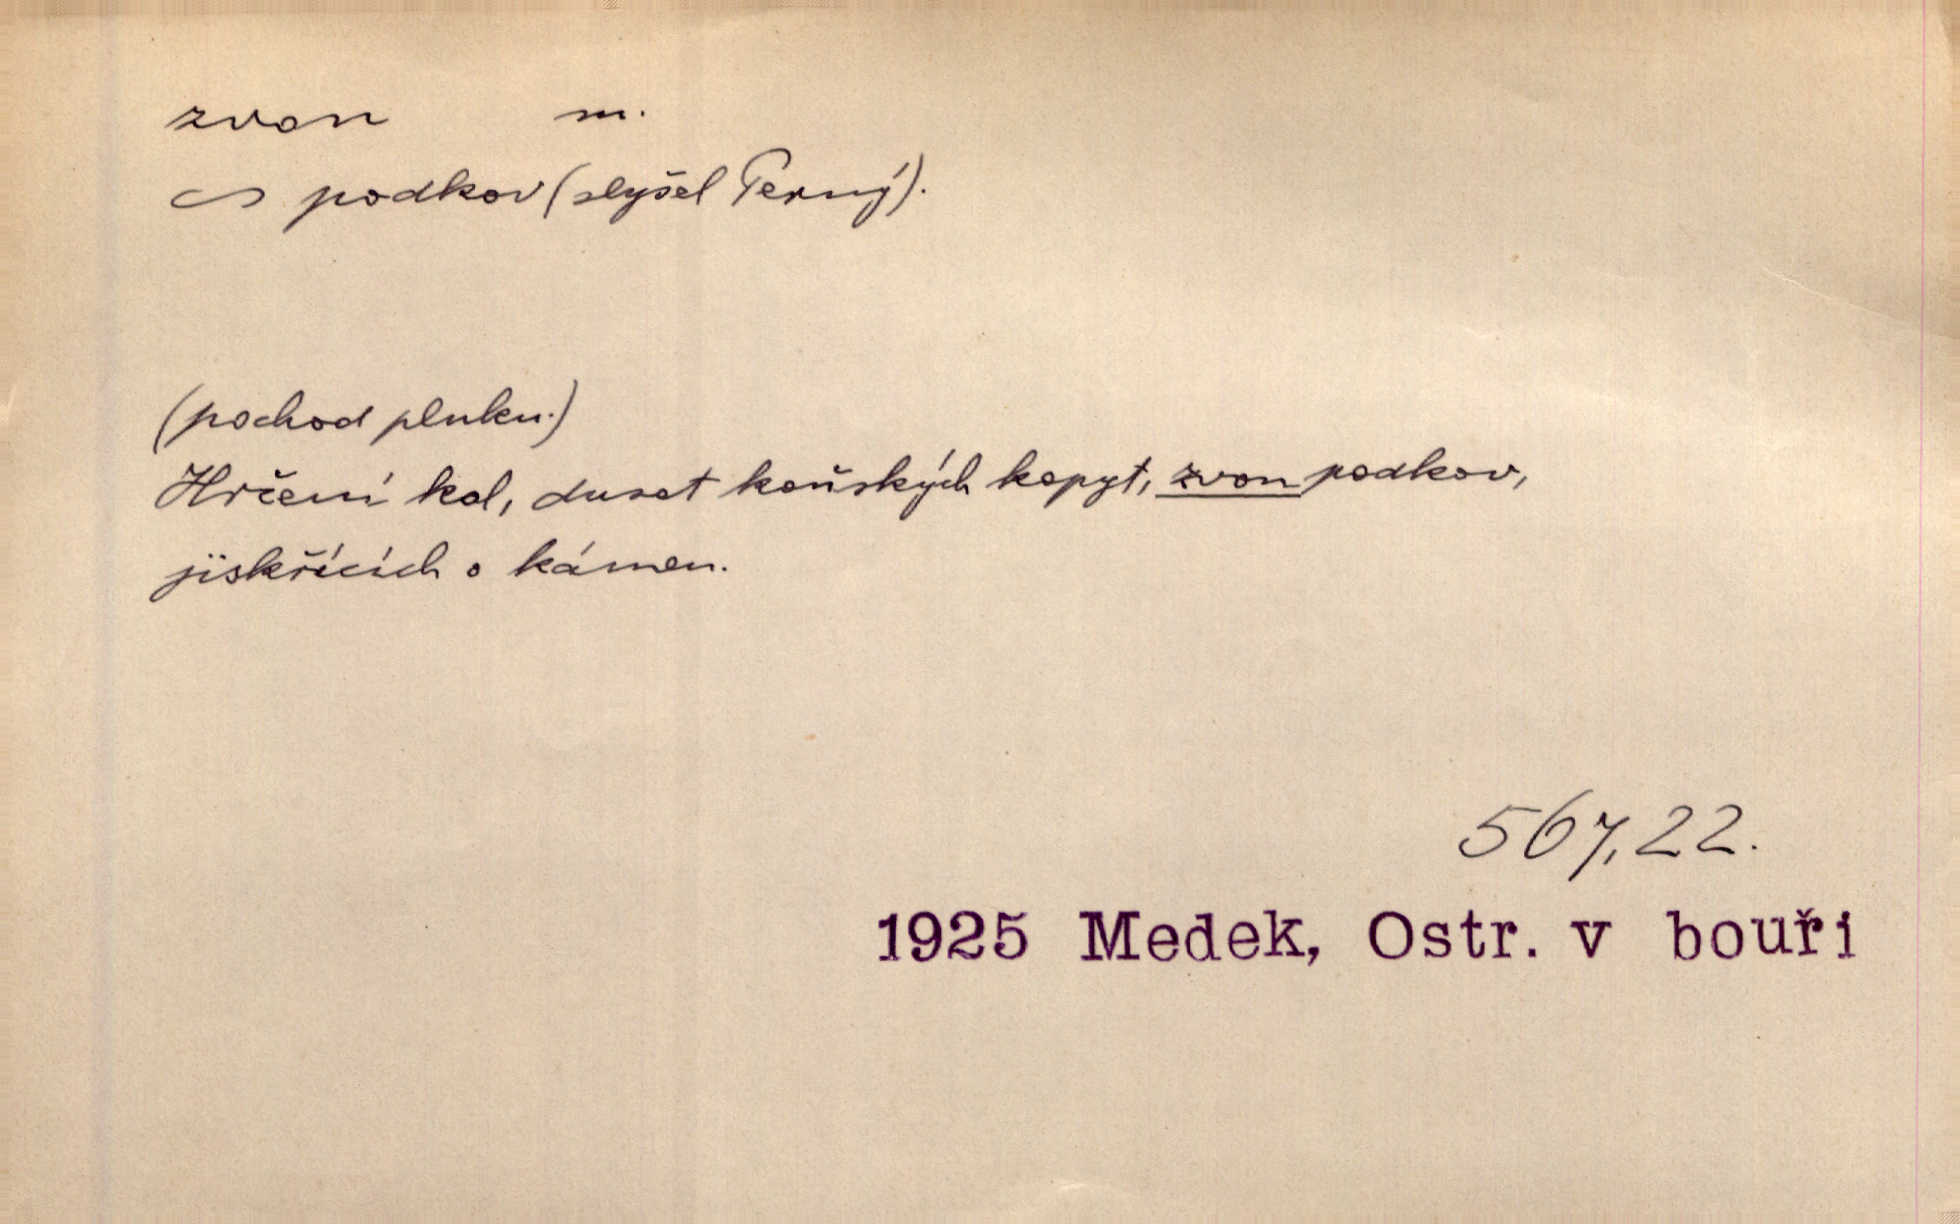 zvon m.
~ podkov (slyšel Perný).
(pochod pluku.)
Hrčení kol, dusot koňských kopyt, zvon podkov,
jiskřících o kámen.
567,22.
1925 Medek, Ostr. v bouři